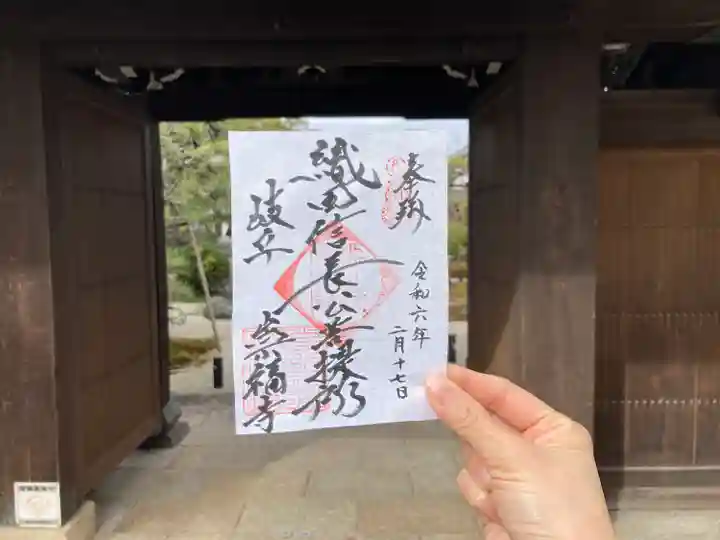 奉拝
令和六年
二月十七日
織田信長公菩提所
岐阜
崇福寺